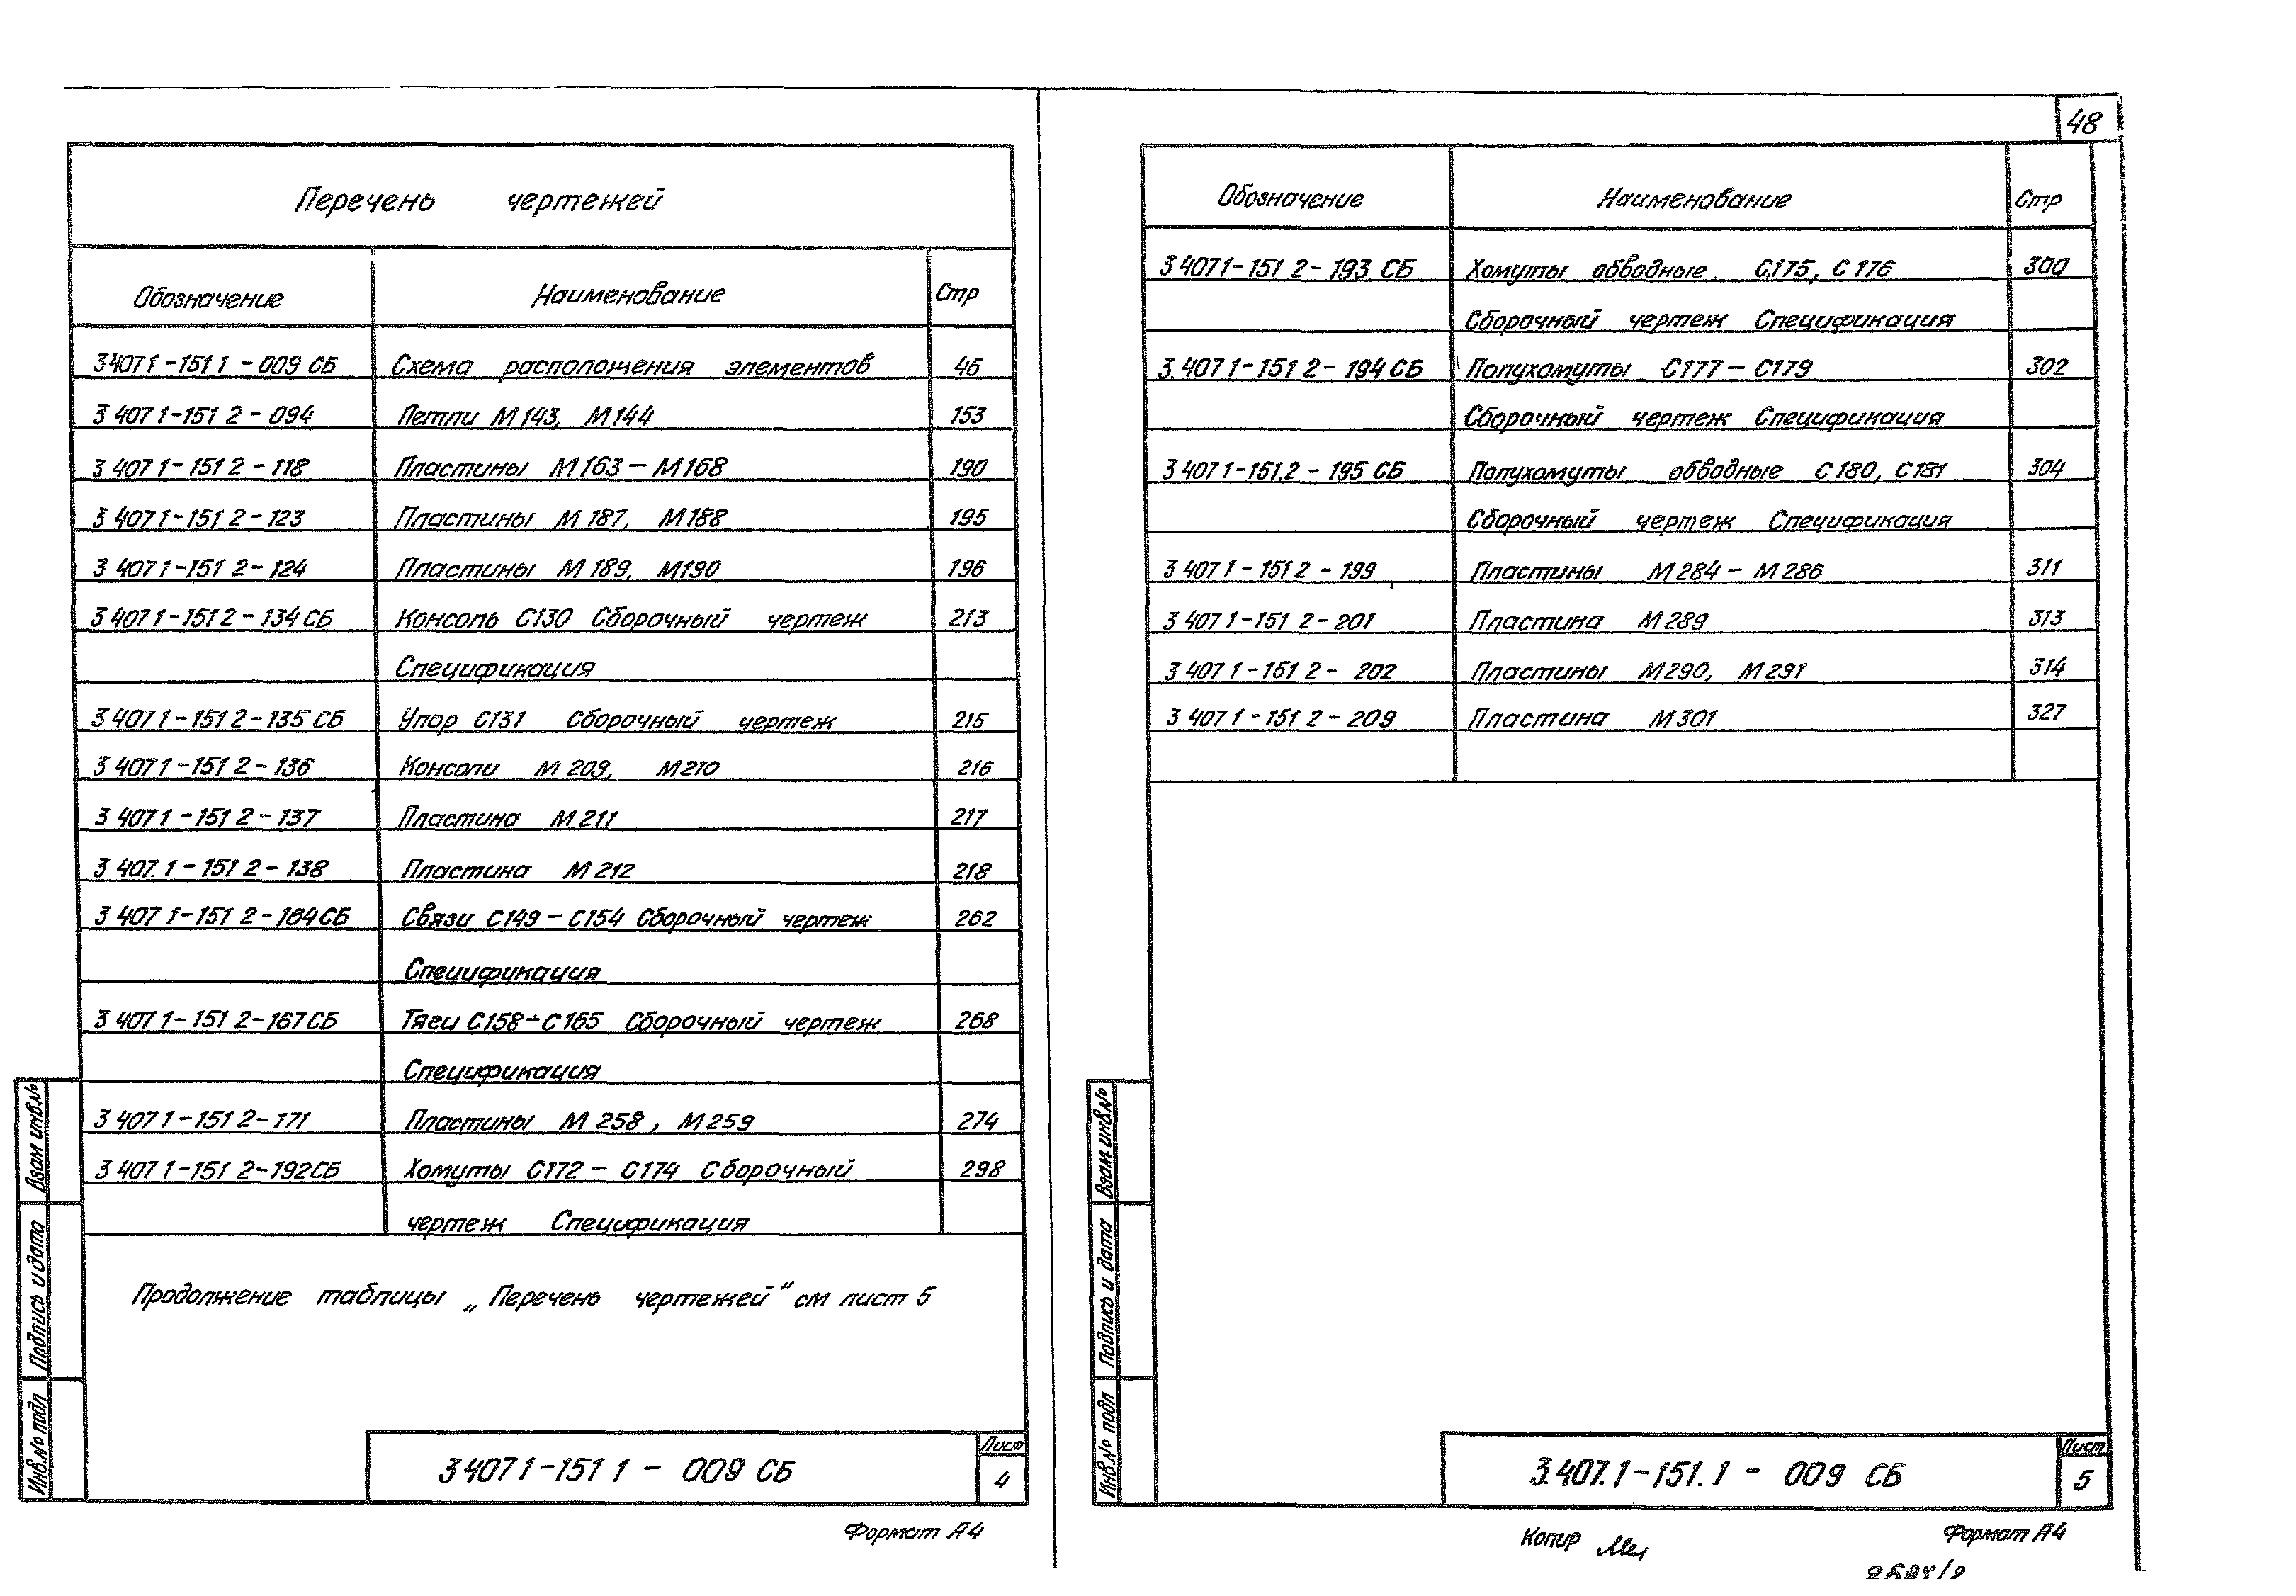 Перечень чертежей
Обозначение Наименование Стр
3 407 1-151 1 - 009 СБ Схема расположения элементов 46
3 407 1-151 2 - 094 Петли М143, М144 153
3 407 1-151 2 - 118 Пластины М163 - М168 190
3 407 1-151 2 - 123 Пластины М187, М188 195
3 407 1-151 2 - 124 Пластины М189, М190 196
3 407 1-151 2 - 134 СБ Консоль С130 Сборочный чертеж 213
Спецификация
3 407 1-151 2 - 135 СБ Упор С131 Сборочный чертеж 215
3 407 1-151 2 - 136 Консоли М209, М210 216
3 407 1-151 2 - 137 Пластина М211 217
3 407. 1 - 151 2 - 138 Пластина М212 218
3 407 1-151 2 - 164 СБ Связи С149 - С154 Сборочный чертеж 262
Спецификация
3 407 1-151 2 - 167 СБ Тяги С158 ÷ С165 Сборочный чертеж 268
Спецификация
3 407 1-151 2 - 171 Пластины М258, М259 274
3 407 1-151 2 - 192 СБ Хомуты С172 - С174 Сборочный 298
чертеж Спецификация
Продолжение таблицы „Перечень чертежей" см лист 5
Взам инв.№
Подпись и дата
Инв.№ подл
3 407 1-151 1 - 009 СБ
Лист
4
Формат А4
48
Обозначение Наименование Стр
3 407 1-151 2 - 193 СБ Хомуты обводные С175, С176 300
Сборочный чертеж Спецификация
3. 407 1-151 2 - 194 СБ Полухомуты С177 - С179 302
Сборочный чертеж Спецификация
3 407 1-151.2 - 195 СБ Полухомуты обводные С180, С181 304
Сборочный чертеж Спецификация
3 407 1 - 151 2 - 199 Пластины М284 - М286 311
3 407 1-151 2 - 201 Пластина М289 313
3 407 1-151 2 - 202 Пластины М290, М291 314
3 407 1-151 2 - 209 Пластина М301 327
Взам. инв.№
Подпись и дата
Инв.№ подл
3.407.1-151.1 - 009 СБ
Лист
5
Копир
Формат А4